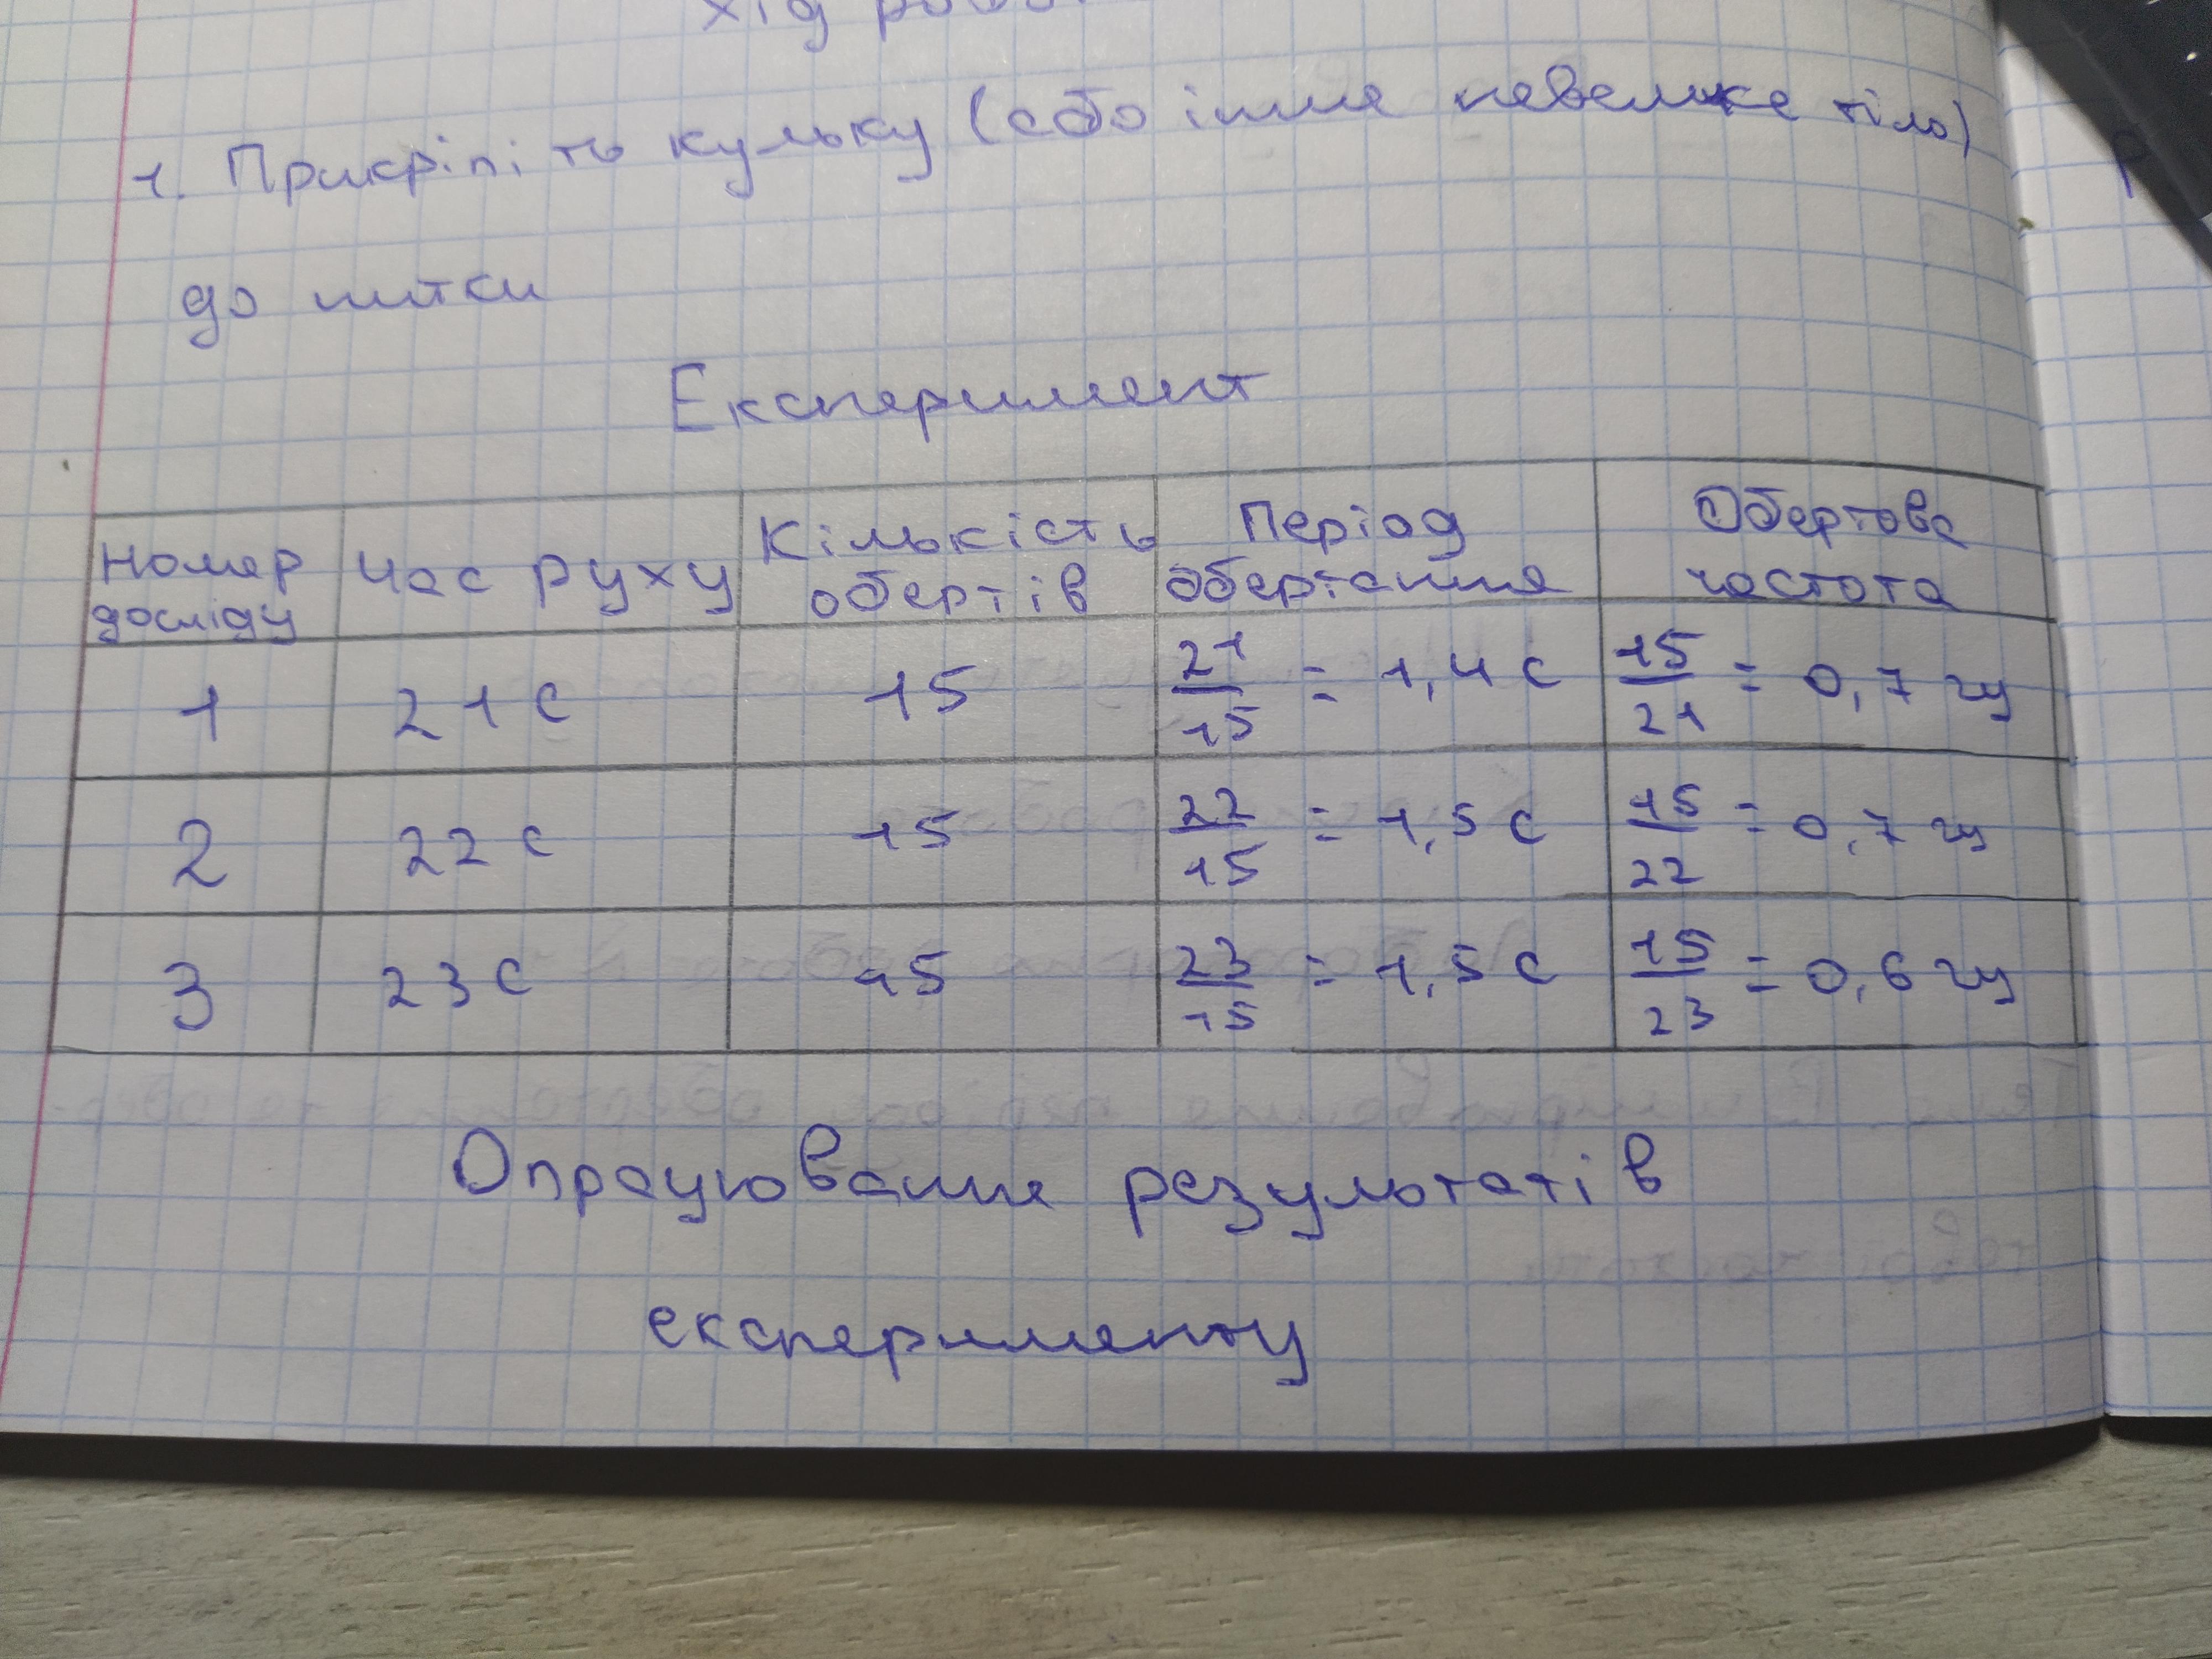 Хід роботи
1. Прикріпіть кульку (або інше невелике тіло)
до нитки
Експеримент
Номер досліду Час руху Кількість обертів Період обертання Обертова частота
1 21 с 15 21/15 = 1,4 с 15/21 = 0,7 гц
2 22 с 15 22/15 = 1,5 с 15/22 = 0,7 гц
3 23 с 15 23/15 = 1,5 с 15/23 = 0,6 гц
Опрацювання результатів
експерименту